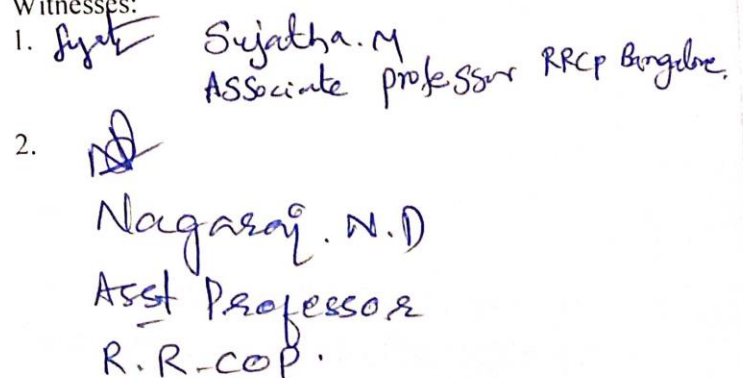 Witnesses:
1. Sujatha.M
Associate professor RRCP Bangalore.
2.
Nagaraj. N.D
Asst Professor
R.R-COP.